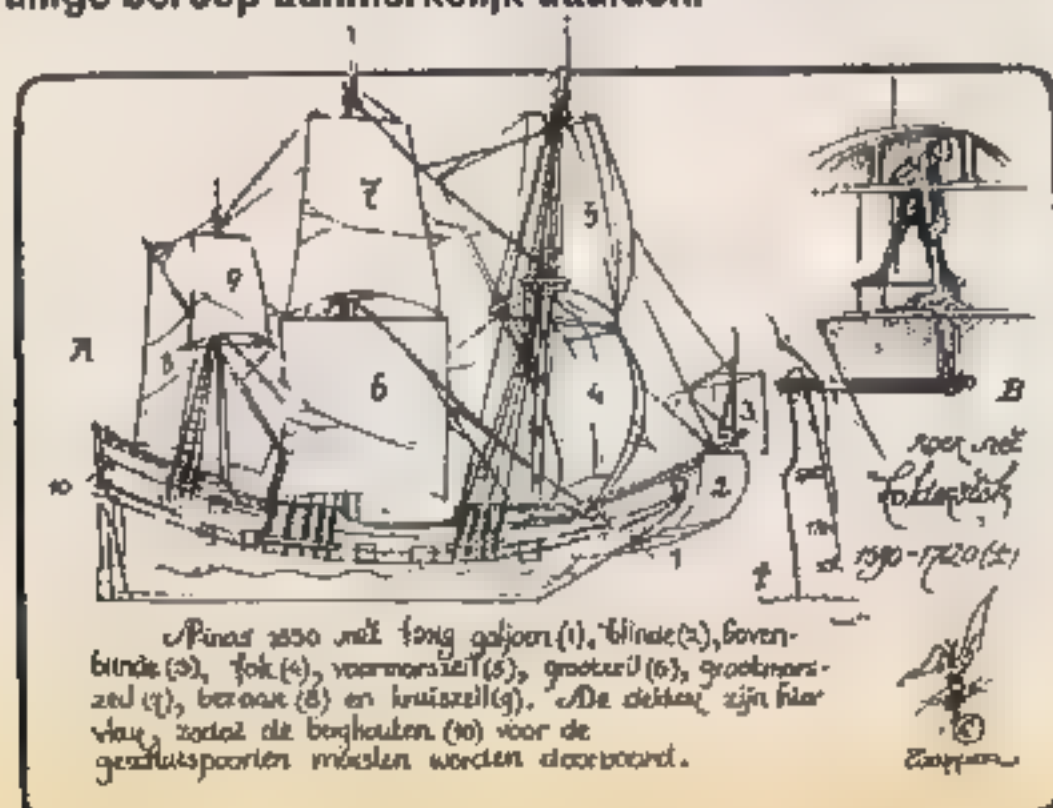 beroep aanmerkelijk
7
5
9
A
8
6
4
3
B
10
2
roer met
1
1590-1720(±)
Pinas 1650 met lang galjoen (1), blinde (2), boven-
blinde (3), fok (4), voormarszeil (5), grootzeil (6), grootmars-
zeil (7), bezaan (8) en kruiszeil (9). De dekken zijn hier
vlak, zodat de berghouten (10) voor de
geschutspoorten moesten worden doorboord.